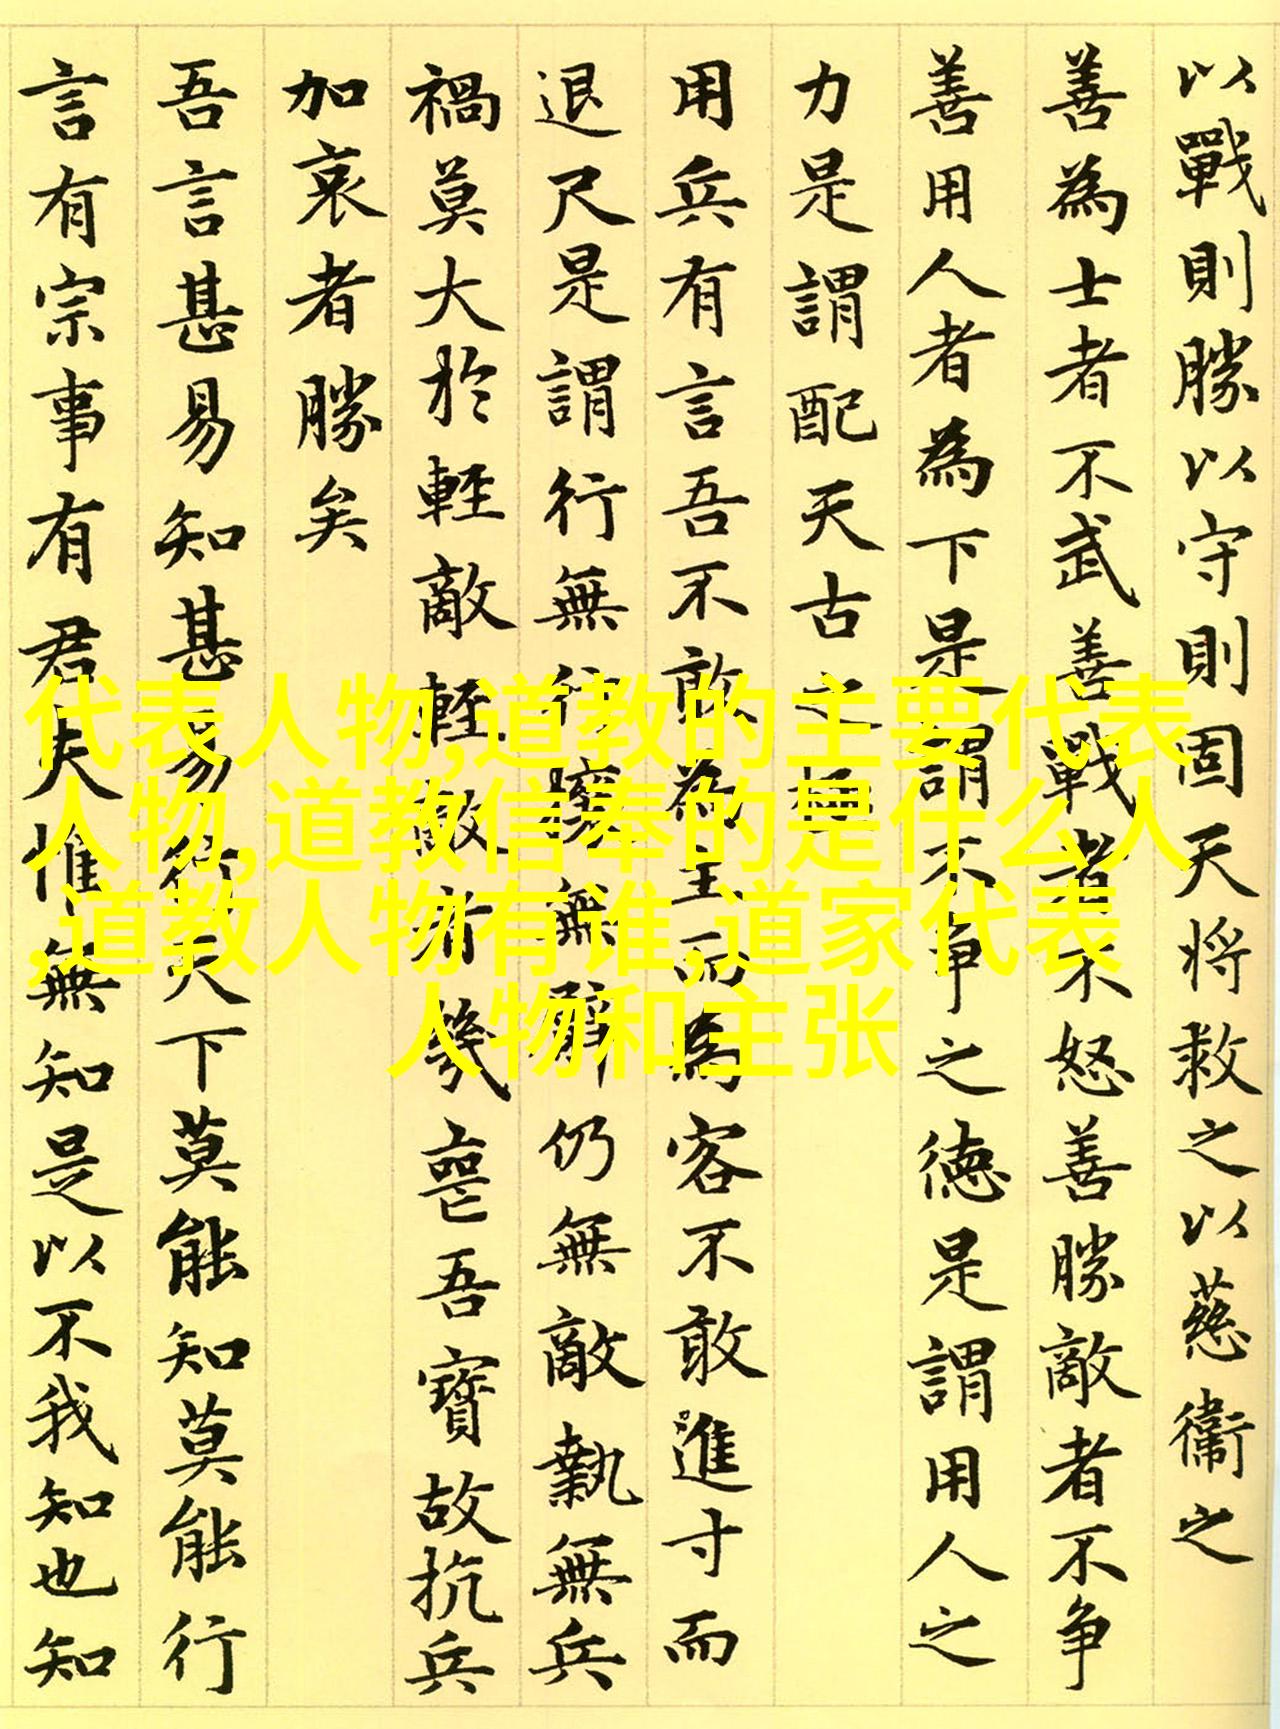 以戰則勝以守則固天将救之以慈衞之
善為士者不武善戰者不怒善勝敵者不争
善用人者為下是謂不争之德是謂用人之
力是謂配天古之極
用兵有言吾不敢為主而為客不敢進寸而
退尺是謂行無行攘無臂仍無敵執無兵
禍莫大於輕敵輕敵者幾喪吾寳故抗兵
加哀者勝矣
吾言甚易知甚易行天下莫能知莫能行
言有宗事有君夫惟無知是以不我知也知
代表人物,道教的主要代表
人物,道教信奉的是什么人
,道教人物有谁,道家代表
人物和主张